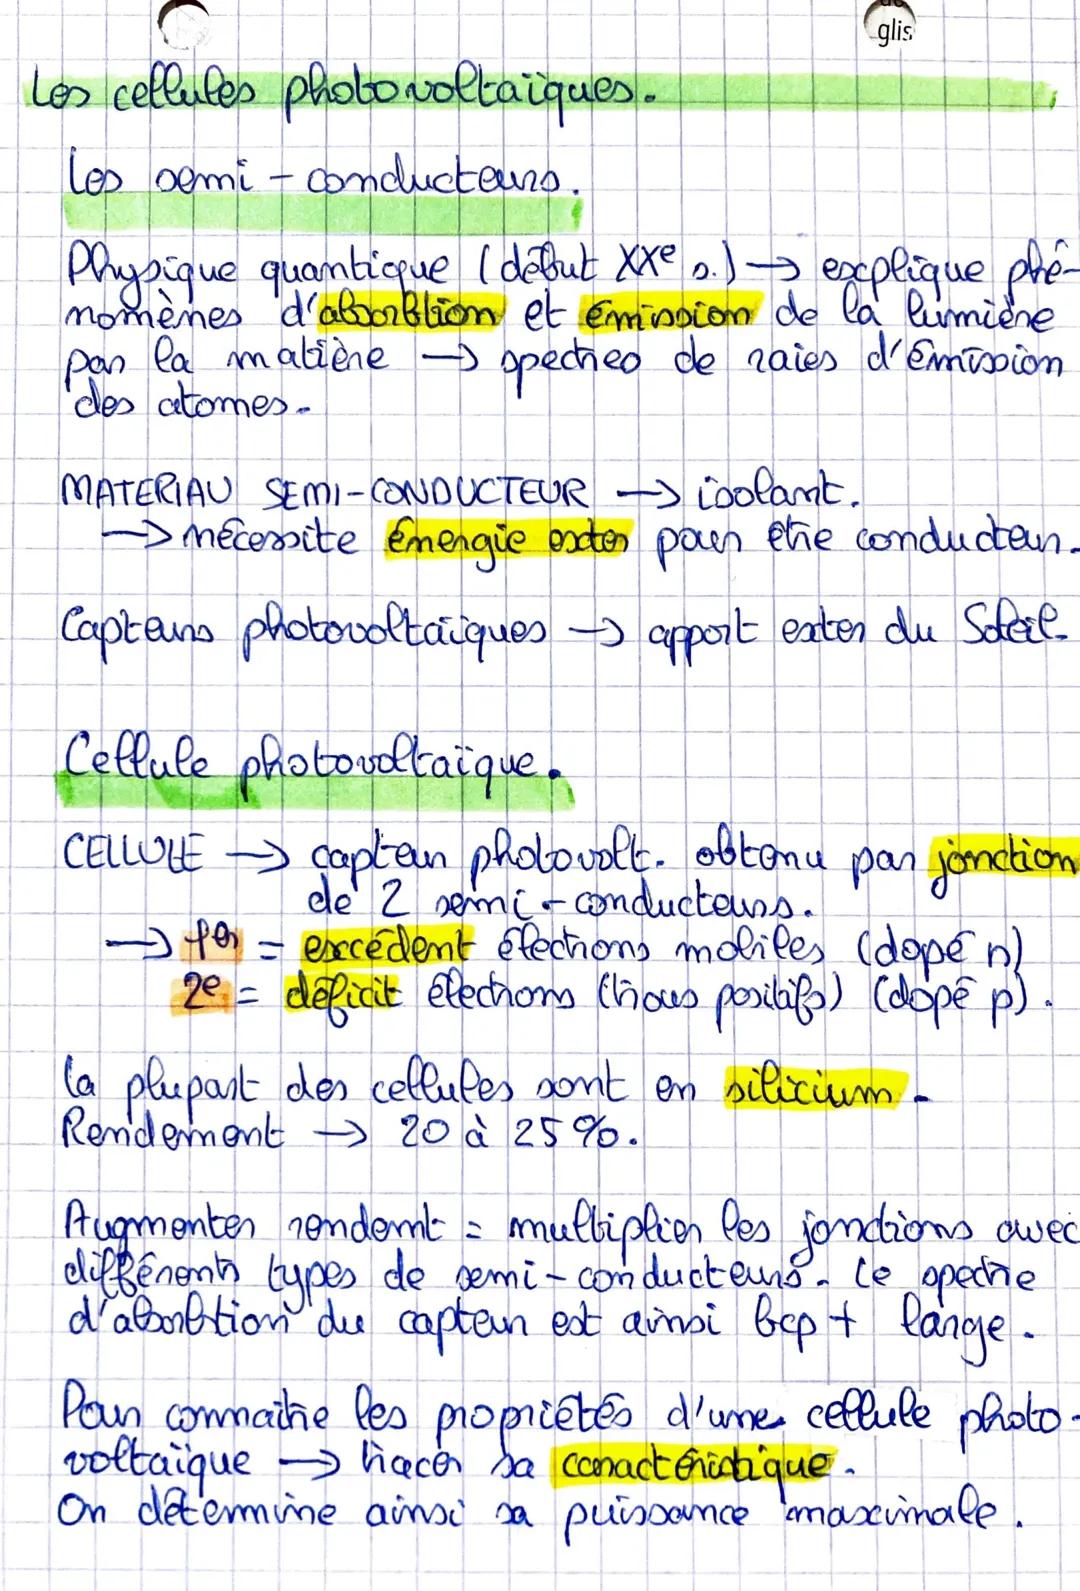 glis
Les cellules photovoltaïques.
Les semi-conducteurs.
Physique quantique (début XXe s.) → explique phé-
nomènes d'absorbtion et émission de la lumière
par la matière → spectres de raies d'émission
des atomes.
MATERIAU SEMI-CONDUCTEUR → isolant.
→ nécessite énergie exter pour être conducteur.
Capteurs photovoltaïques → apport exter du Soleil.
Cellule photovoltaïque.
CELLULE → capteur photovolt. obtenu par jonction
de 2 semi-conducteurs.
→ 1er = excédent électrons mobiles (dopé n)
2e = déficit électrons (trous positifs) (dopé p).
La plupart des cellules sont en silicium.
Rendement → 20 à 25%.
Augmenter rendemt = multiplier les jonctions avec
différents types de semi-conducteurs. Le spectre
d'absorbtion du capteur est ainsi bcp + large.
Pour connaître les propriétés d'une cellule photo-
voltaïque → tracer sa caractéristique.
On détermine ainsi sa puissance maximale.